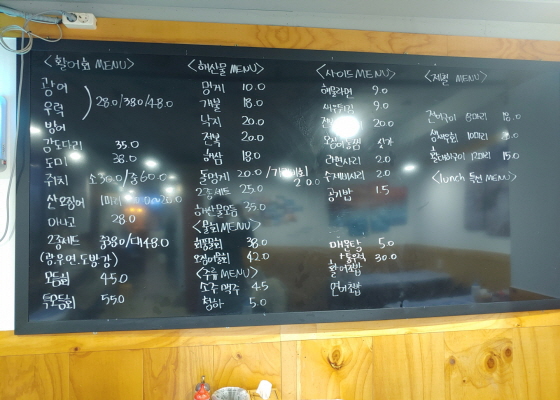 <활어회 MENU>
광어
우럭
28.0/38.0/48.0
방어
감도다리 35.0
도미 38.0
쥐치 소30.0/중60.0
산오징어 1마리
아나고 28.0
2종세트 (중38.0/대48.0
(광,우,연,도,방,강)
모듬회 45.0
특모듬회 55.0
<해산물 MENU>
멍게 10.0
개불 18.0
낙지 20.0
전복 20.0
18.0
돌멍게 20.0
2종세트 25.0
해산물모듬 35.0
<물회MENU>
회물회 38.0
오징어물회 42.0
<주류 MENU>
소주 맥주 4.5
청하 5.0
<사이드 MENU>
해물라면 9.0
새우튀김 9.0
20.0
라면사리 2.0
수제비사리 2.0
공기밥 1.5
매운탕 5.0
30.0
활어초밥
연어초밥
<제철 MENU>
8마리 18.0
10마리
12마리 15.0
<lunch 특선 MENU>